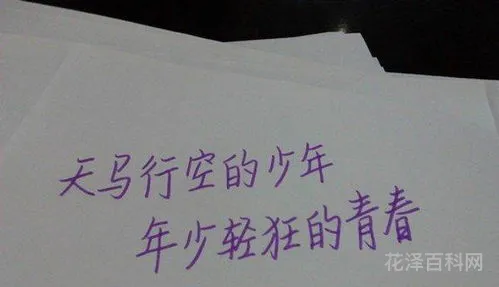 天马行空的少年
年少轻狂的青春
花泽百科网